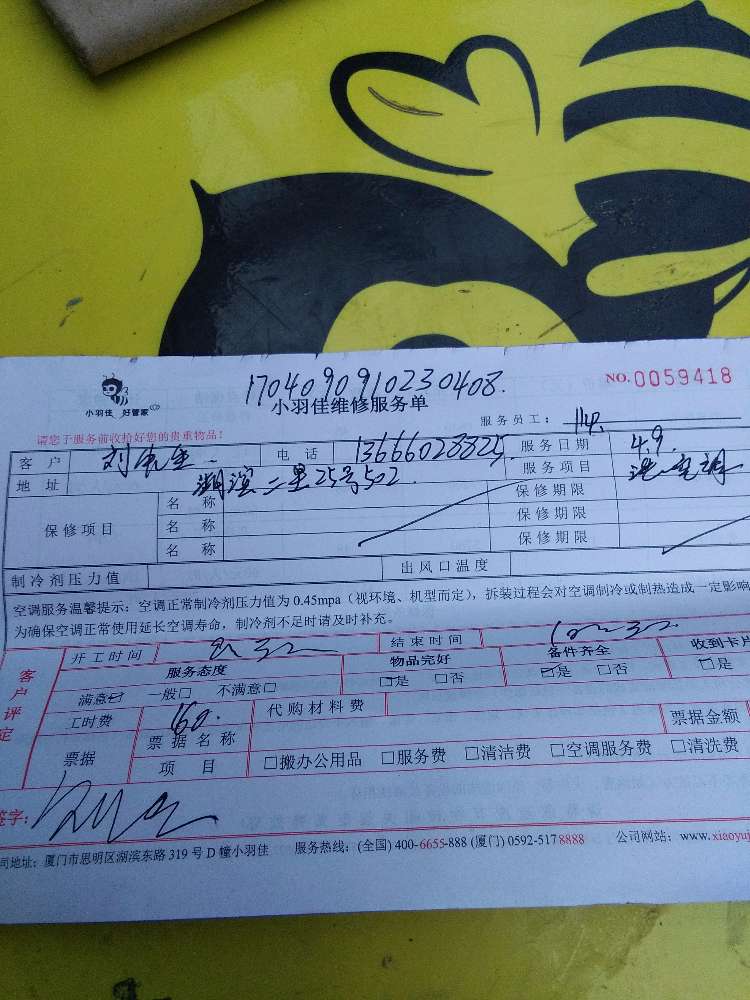 1704090910230408.
小羽佳 好管家
小羽佳维修服务单
NO.0059418
服务员工：
请您于服务前收拾好您的贵重物品！
客 户 刘 电 话 13666028825 服务日期 4.9.
地 址 湖滨二里25号502. 服务项目 洗空调
保修项目 名 称 保修期限
名 称 保修期限
名 称 保修期限
制冷剂压力值 出风口温度
空调服务温馨提示：空调正常制冷剂压力值为 0.45mpa（视环境、机型而定），拆装过程会对空调制冷或制热造成一定影响
为确保空调正常使用延长空调寿命，制冷剂不足时请及时补充。
客户评定 开工时间 结束时间
服务态度 物品完好 备件齐全 收到卡片
满意☑ 一般□ 不满意□ □是 □否 ☑是 □否 □是
工时费 60. 代购材料费
票据 票据名称 票据金额
项 目 □搬办公用品 □服务费 □清洁费 □空调服务费 □清洗费
签字：
司地址：厦门市思明区湖滨东路 319 号 D 幢小羽佳 服务热线：(全国) 400-6655-888 (厦门) 0592-5178888 公司网站：www.xiaoyuj